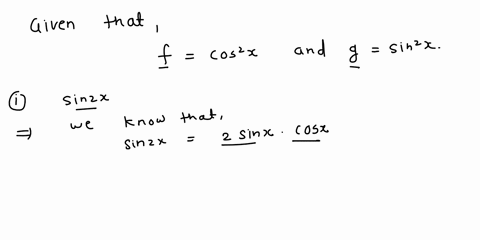 Given that,
f = cos²x and g = sin²x.
① sin2x
⇒ we know that,
sin2x = 2 sinx · cosx